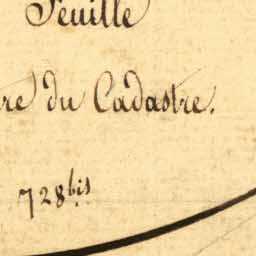 Feuille
re du Cadastre.
728bis